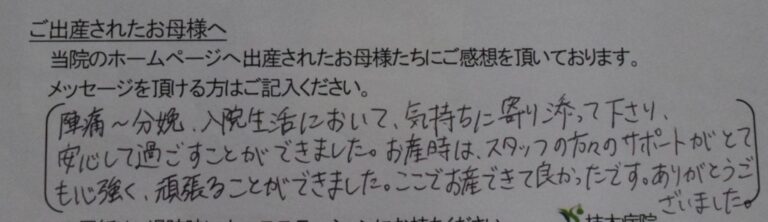 ご出産されたお母様へ
当院のホームページへ出産されたお母様たちにご感想を頂いております。
メッセージを頂ける方はご記入ください。
陣痛～分娩、入院生活において、気持ちに寄り添って下さり、
安心して過ごすことができました。お産時は、スタッフの方々のサポートがとて
も心強く、頑張ることができました。ここでお産できて良かったです。ありがとうご
ざいました。